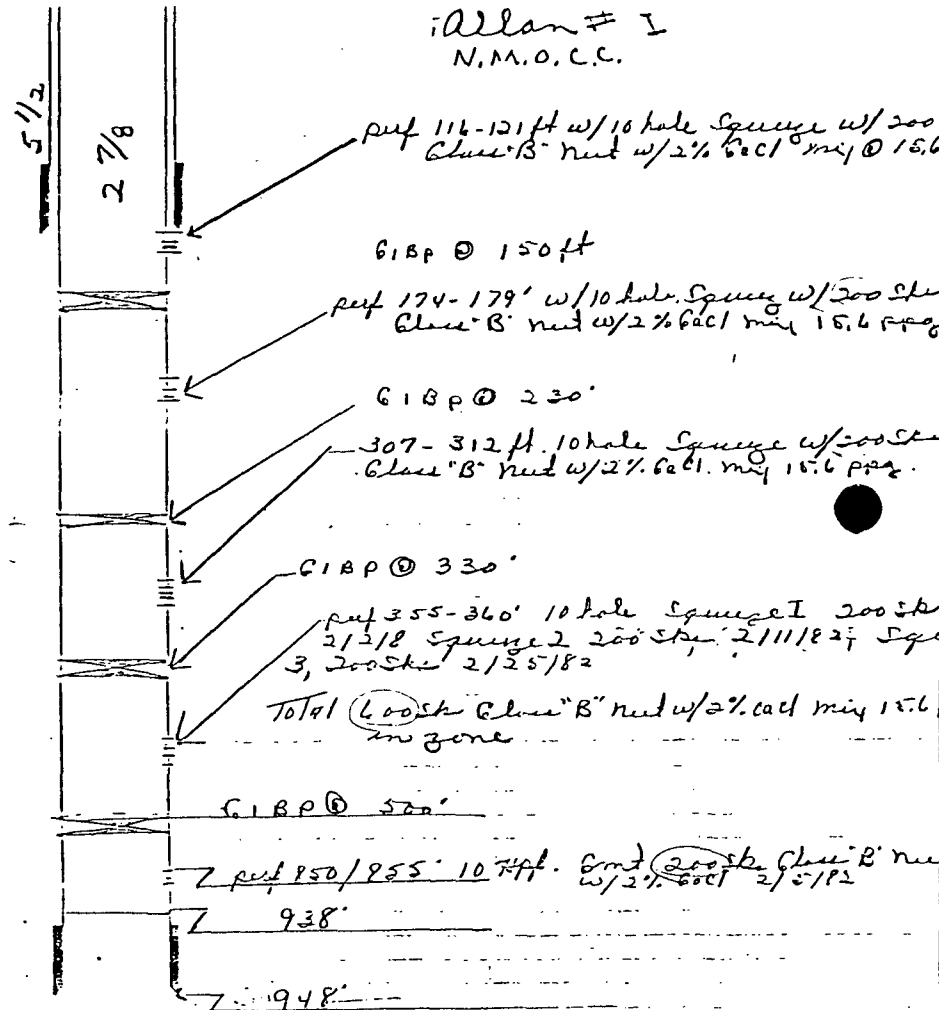 Allan # I
N.M.O.C.C.
5 1/2
2 7/8
perf 116-121 ft w/10 hole Squeeze w/ 200
Class "B" Neet w/2% CaCl mix @ 15.6
CIBP @ 150 ft
perf 174-179' w/10 hole. Squeeze w/200 Sks
Class "B" neet w/2% CaCl mix 15.6 ppg
CIBP @ 230'
307-312 ft. 10 hole Squeeze w/200 Sks
Class "B" neet w/2% CaCl. mix 15.6 ppg.
CIBP @ 330'
perf 355-360' 10 hole Squeeze I 200 Sks
2/2/8 Squeeze 2 200 Sks 2/11/82, Sque
3, 200 Sks 2/25/82
Total 600 sk Class "B" neet w/2% cacl mix 15.6
in zone
CIBP @ 500'
perf 850/855' 10 Cmt 200 sk Class "B" nee
w/2% CaCl 2/5/82
938'
948'